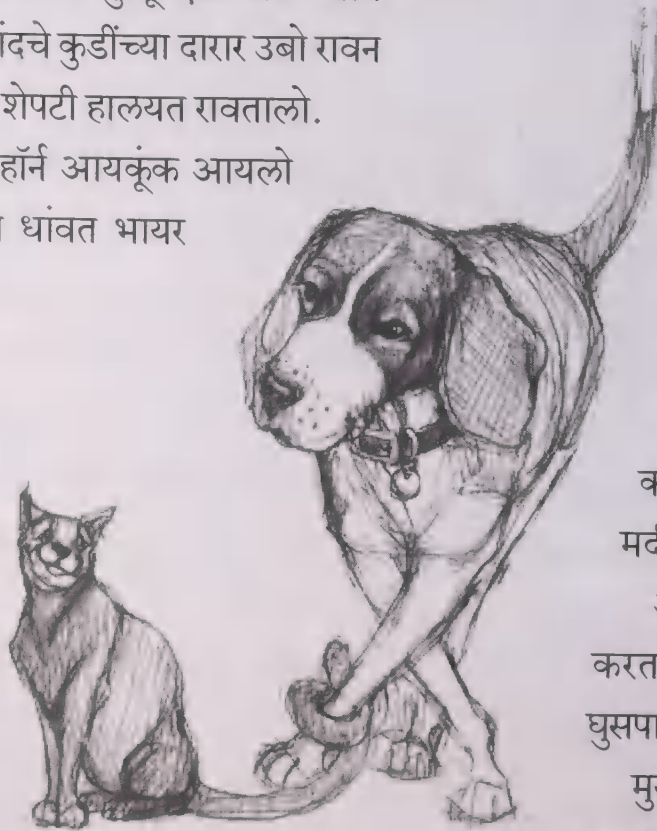 ांदचे कुडींच्या दारार उबो रावन
शेपटी हालयत रावतालो.
हॉर्न आयकूंक आयलो
धांवत भायर
करत
घुसपा